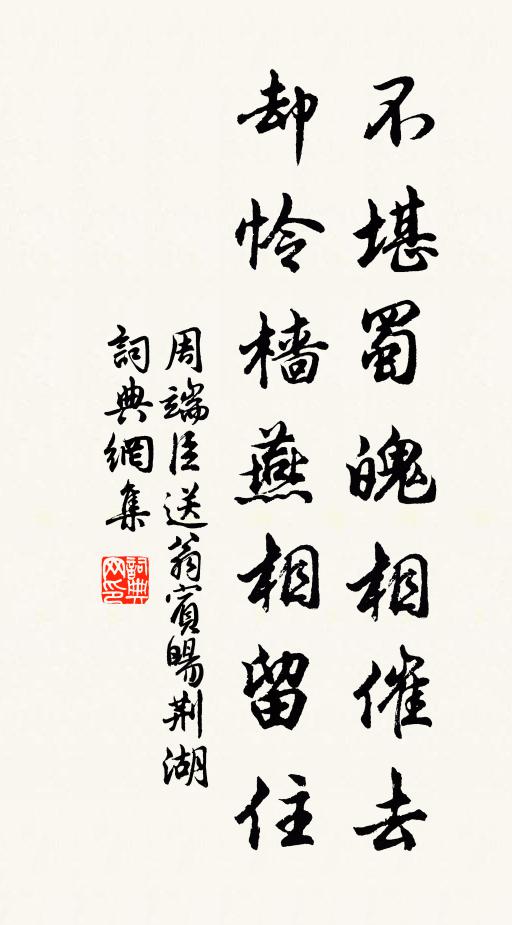 不堪蜀魄相催去
却怜檣燕相留住
周端臣送翁賓暘荆湖
詞典網集
詞典网印